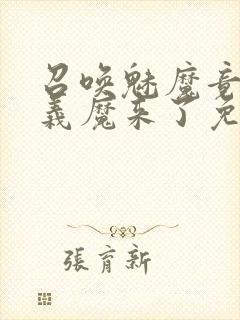 召唤魅魔竟
義魔来了免
張育新